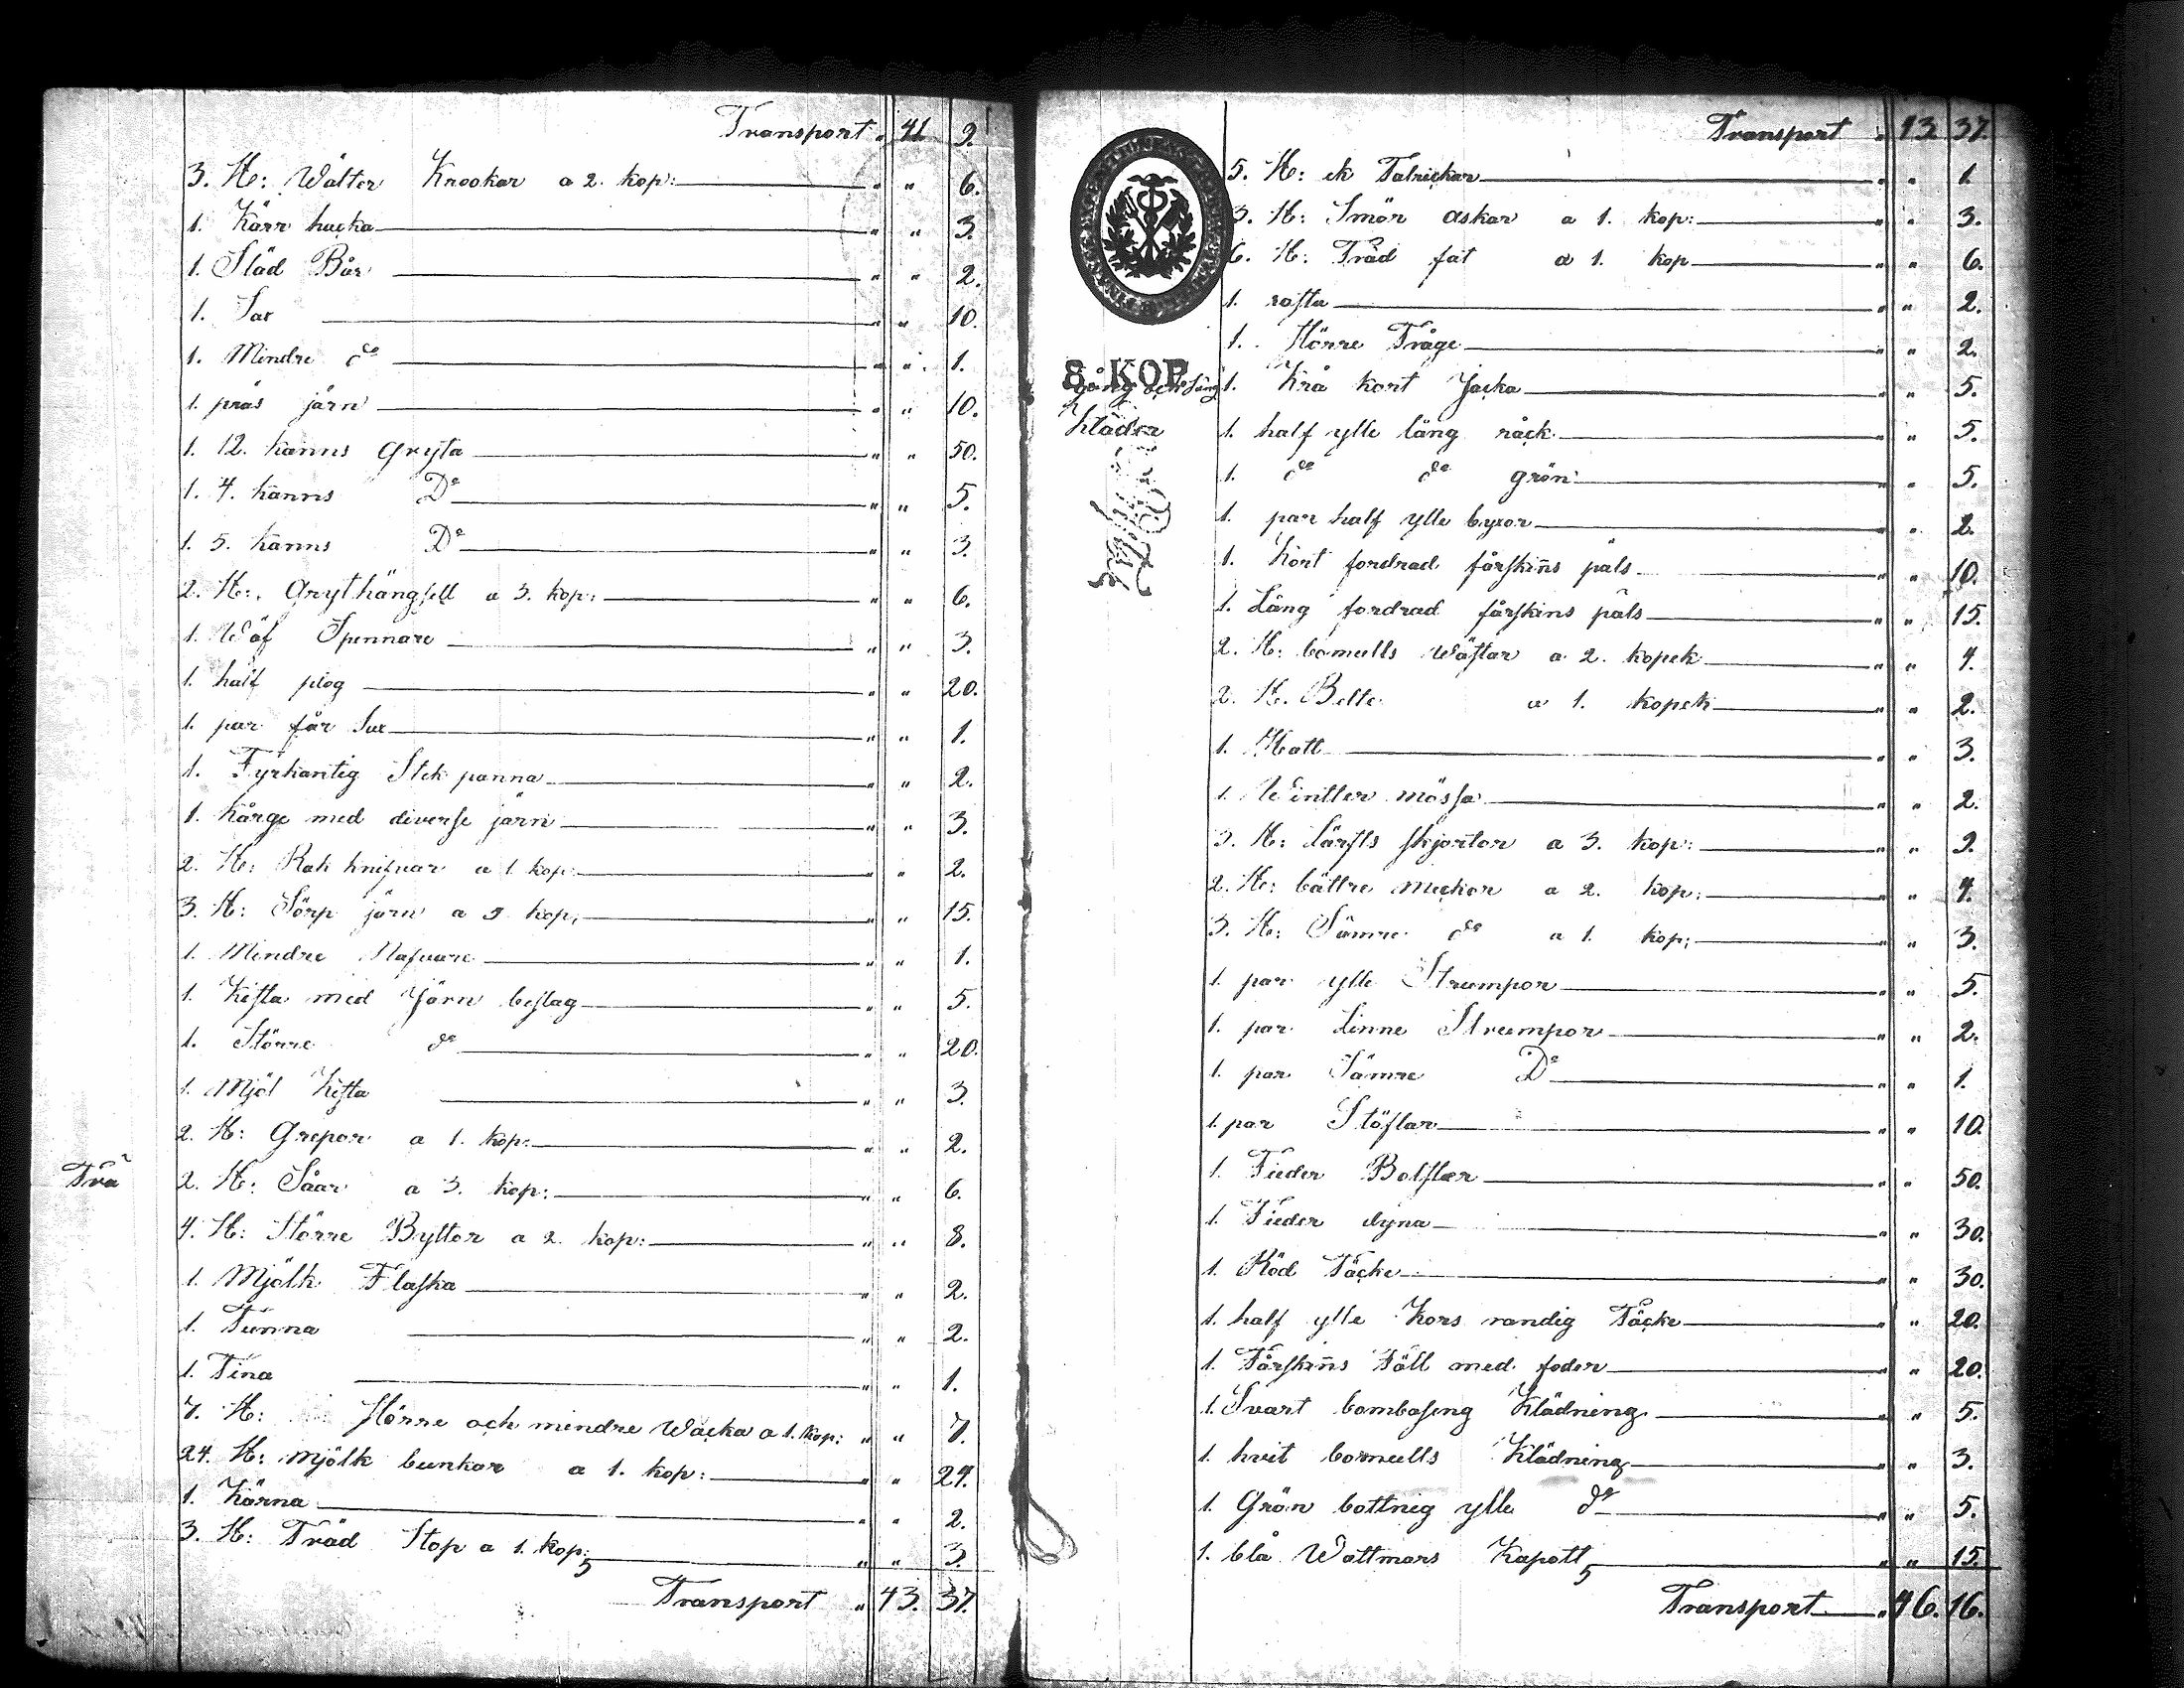 Transport " 41 9.
3. St: Wälter Krookar a 2. kop: " " 6.
1. Kärr hacka " " 3.
1. Städ Bår " " 2.
1. Sax " " 10.
1. Mindre do " " 1.
1. präs järn " " 10.
1. 12. kanns gryta " " 50.
1. 4. kanns Do " " 5.
1. 5. kanns Do " " 3.
2. St: Grythängsell a 3. kop: " " 6.
1. Wäf Spennare " " 3.
1. half plog " " 20.
1. par får Sax " " 1.
1. Fyrkantig Stek panna " " 2.
1. kårge med diverse järn " " 3.
2. St: Rak knifvar a 1 kop: " " 2.
3. St: Törp järn a 5 kop: " " 15.
1. Mindre Nafvare " " 1.
1. Kista med Järn beslag " " 5.
1. Större do " " 20.
1. Mjöl Kista " " 3.
2. St: Grepar a 1. kop: " " 2.
Trä
2. St: Såar a 3. kop: " " 6.
4. St: Större Byttor a 2. kop: " " 8.
1. Mjölk Flaska " " 2.
1. Tunna " " 2.
1. Tina " " 1.
7. St: Större och mindre Wacka a 1. kop: " " 7.
24. St: mjölk bunkar a 1. kop: " " 24.
1. Kärna " " 2.
3. St: Träd Stop a 1. kop: " " 3.
Transport " 43. 37.
Transport " 43 37.
5. St: ek Talrickar " " 1.
3. St: Smör askar a 1. kop: " " 3.
6. St: Träd fat a 1. kop " " 6.
1. " " 2.
1. Större Tråge " " 2.
8 KOP
gång och Säng
Kläder
1. Krå kort Jacka " " 5.
1. half ylle lång råck " " 5.
1. do do grön " " 5.
1. par half ylle byxor " " 2.
1. Kort fordrad fårskins päls " " 10.
1. Lång fordrad fårskins päls " " 15.
2. St: bomulls Wästar a 2. kopek " " 4.
2. St. Bälte a 1. kopek " " 2.
1. Hatt " " 3.
1. Wintter mössa " " 2.
3. St: Lärfts skjortor a 3. kop: " " 9.
2. St: bättre muckor a 2. kop: " " 4.
3. St: Sämre do a 1. kop: " " 3.
1. par ylle Strumpor " " 5.
1. par Linne Strumpor " " 2.
1. par Sämre Do " " 1.
1. par Stöflar " " 10.
1. Fieder Bolster " " 50.
1. Fieder dyna " " 30.
1. Röd Täcke " " 30.
1. half ylle Kors randig Täcke " " 20.
1. Fårskins Fäll med foder " " 20.
1. Svart bombaseng Klädning " " 5.
1. hvit bomulls Klädning " " 3.
1. Grön bottnig ylle do " " 5.
1. blå Wattmars Kapott " " 15.
Transport " 46. 16.